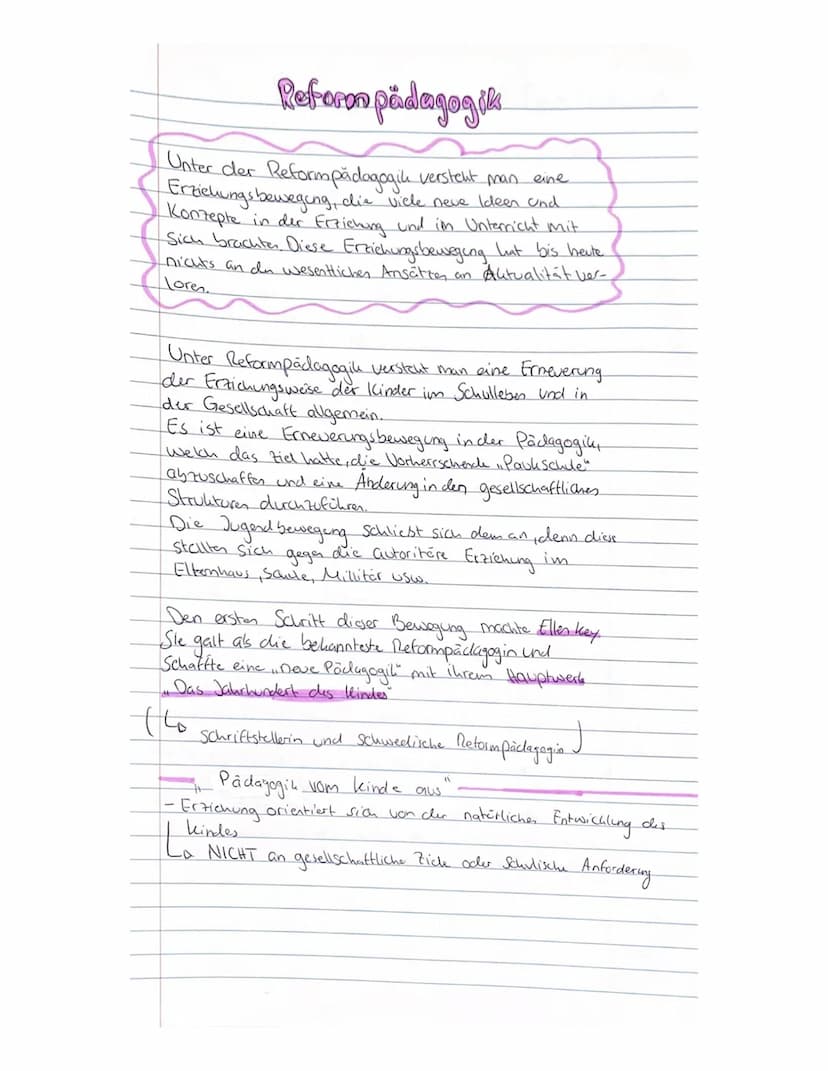 Reformpädagogik
Unter der Reformpädagogik versteht man eine
Erziehungsbewegung, die viele neue Ideen und
Konzepte in der Erziehung und im Unterricht mit
sich brachten. Diese Erziehungsbewegung hat bis heute
nichts an den wesentlichen Ansätzen an Aktualität ver-
loren.
Unter Reformpädagogik versteht man eine Erneuerung
der Erziehungsweise der Kinder im Schulleben und in
der Gesellschaft allgemein.
Es ist eine Erneuerungsbewegung in der Pädagogik,
welch das Ziel hatte, die Vorherrschende „Paukschule"
abzuschaffen und eine Änderung in den gesellschaftlichen
Strukturen durchzuführen.
Die Jugendbewegung schließt sich dem an, denn diese
stellten sich gegen die autoritäre Erziehung im
Elternhaus, Schule, Millitär usw.
Den ersten Schritt dieser Bewegung machte Ellen Key.
Sie galt als die bekannteste Reformpädagogin und
schaffte eine „neue Pädagogik" mit ihrem Hauptwerk
„Das Jahrhundert des Kindes"
(↳ Schriftstellerin und schwedische Reformpädagogin)
„Pädagogik vom Kinde aus"
- Erziehung orientiert sich von der natürlichen Entwicklung des
Kindes
↳ NICHT an gesellschaftliche Ziele oder Schulische Anforderung